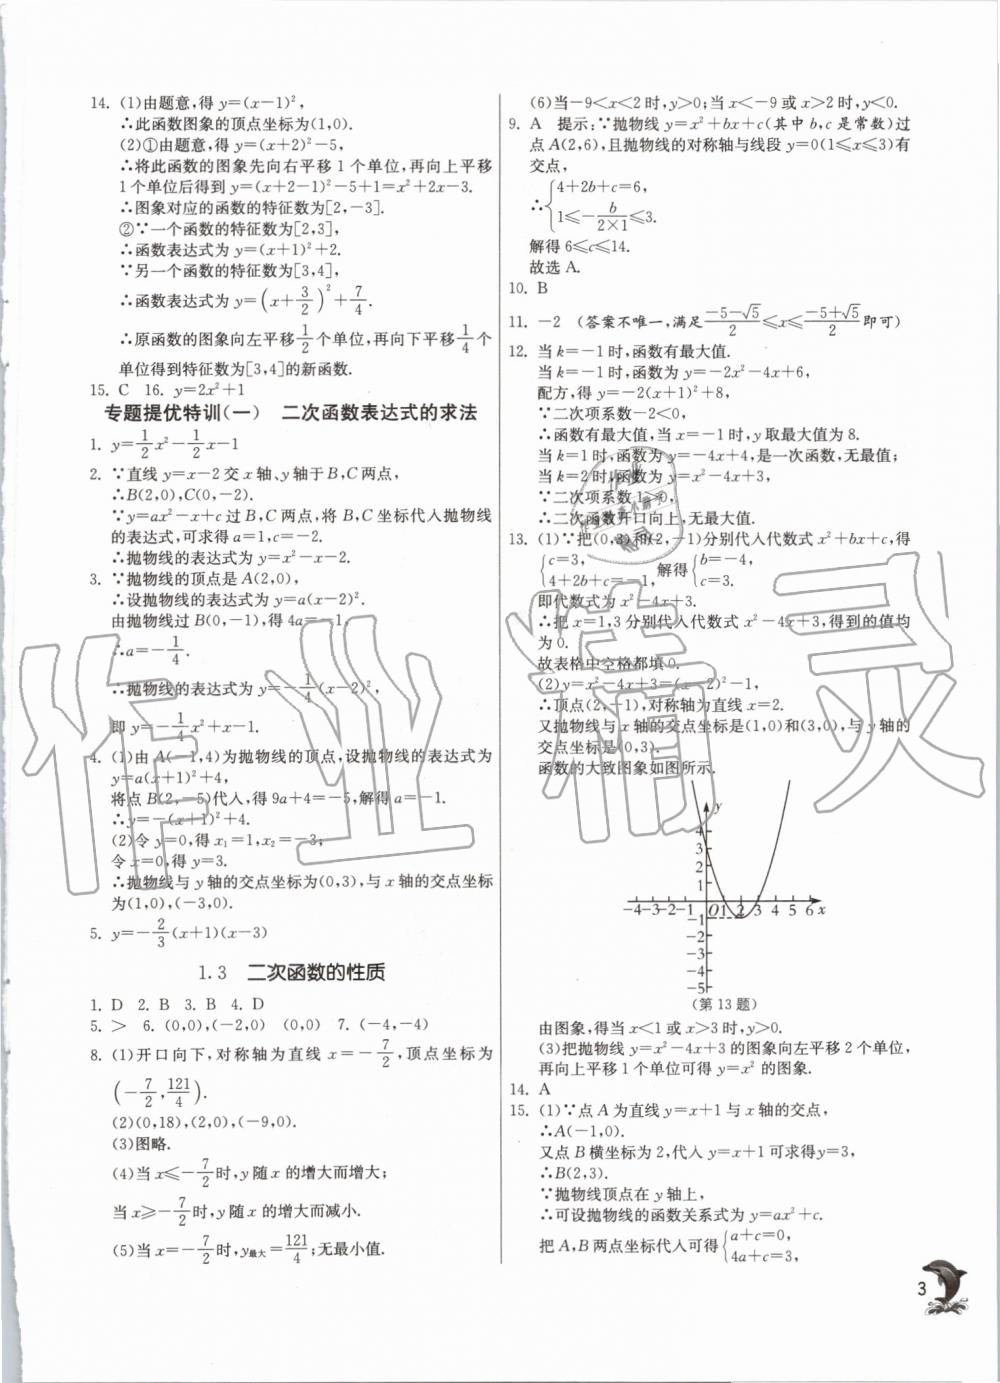 14. (1)由题意,得 y=(x-1)²,
∴此函数图象的顶点坐标为(1,0).
(2)①由题意,得 y=(x+2)²-5,
∴将此函数的图象先向右平移 1 个单位,再向上平移
1 个单位后得到 y=(x+2-1)²-5+1=x²+2x-3.
∴图象对应的函数的特征数为[2,-3].
②∵一个函数的特征数为[2,3],
∴函数表达式为 y=(x+1)²+2.
∵另一个函数的特征数为[3,4],
∴函数表达式为 y=(x+3/2)²+7/4.
∴原函数的图象向左平移 1/2 个单位,再向下平移 1/4 个
单位得到特征数为[3,4]的新函数.
15. C 16. y=2x²+1
专题提优特训(一) 二次函数表达式的求法
1. y=1/2x²-1/2x-1
2. ∵直线 y=x-2 交 x 轴、y 轴于 B,C 两点,
∴B(2,0),C(0,-2).
∵y=ax²-x+c 过 B,C 两点,将 B,C 坐标代入抛物线
的表达式,可求得 a=1,c=-2.
∴抛物线的表达式为 y=x²-x-2.
3. ∵抛物线的顶点是 A(2,0),
∴设抛物线的表达式为 y=a(x-2)².
由抛物线过 B(0,-1),得 4a=-1,
∴a=-1/4.
∴抛物线的表达式为 y=-1/4(x-2)²,
即 y=-1/4x²+x-1.
4. (1)由 A(-1,4)为抛物线的顶点,设抛物线的表达式为
y=a(x+1)²+4,
将点 B(2,-5)代入,得 9a+4=-5,解得 a=-1.
∴y=-(x+1)²+4.
(2)令 y=0,得 x₁=1,x₂=-3;
令 x=0,得 y=3.
∴抛物线与 y 轴的交点坐标为(0,3),与 x 轴的交点坐标
为(1,0),(-3,0).
5. y=-2/3(x+1)(x-3)
1.3 二次函数的性质
1. D 2. B 3. B 4. D
5. > 6. (0,0),(-2,0) (0,0) 7. (-4,-4)
8. (1)开口向下,对称轴为直线 x=-7/2,顶点坐标为
(-7/2,121/4).
(2)(0,18),(2,0),(-9,0).
(3)图略.
(4)当 x≤-7/2时,y 随 x 的增大而增大;
当 x≥-7/2时,y 随 x 的增大而减小.
(5)当 x=-7/2时,y最大=121/4;无最小值.
(6)当-9<x<2 时,y>0;当 x<-9 或 x>2时,y<0.
9. A 提示:∵抛物线 y=x²+bx+c(其中 b,c 是常数)过
点 A(2,6),且抛物线的对称轴与线段 y=0(1≤x≤3)有
交点,
∴{4+2b+c=6,
1≤-b/(2×1)≤3.
解得 6≤c≤14.
故选 A.
10. B
11. -2 (答案不唯一,满足(-5-√5)/2≤x≤(-5+√5)/2即可)
12. 当 k=-1 时,函数有最大值.
当 k=-1 时,函数为 y=-2x²-4x+6,
配方,得 y=-2(x+1)²+8,
∵二次项系数-2<0,
∴函数有最大值,当 x=-1 时,y 取最大值为 8.
当 k=1 时,函数为 y=-4x+4,是一次函数,无最值;
当 k=2时,函数为 y=x²-4x+3,
∵二次项系数 1>0,
∴二次函数开口向上,无最大值.
13. (1)∵把(0,3)和(2,-1)分别代入代数式 x²+bx+c,得
{c=3, 4+2b+c=-1, 解得{b=-4, c=3.
即代数式为 x²-4x+3.
∴把 x=1,3 分别代入代数式 x²-4x+3,得到的值均
为 0.
故表格中空格都填 0.
(2)y=x²-4x+3=(x-2)²-1,
∴顶点(2,-1),对称轴为直线 x=2.
又抛物线与 x 轴的交点坐标是(1,0)和(3,0),与 y 轴的
交点坐标是(0,3).
函数的大致图象如图所示.
y
4
3
2
1
-4-3-2-1 O 1 2 3 4 5 6 x
-1
-2
-3
-4
-5
(第 13 题)
由图象,得当 x<1 或 x>3 时,y>0.
(3)把抛物线 y=x²-4x+3 的图象向左平移 2 个单位,
再向上平移 1 个单位可得 y=x² 的图象.
14. A
15. (1)∵点 A 为直线 y=x+1 与 x 轴的交点,
∴A(-1,0).
又点 B 横坐标为 2,代入 y=x+1 可求得y=3,
∴B(2,3).
∵抛物线顶点在 y 轴上,
∴可设抛物线的函数关系式为 y=ax²+c.
把 A,B 两点坐标代入可得{a+c=0, 4a+c=3,
3
作业精灵